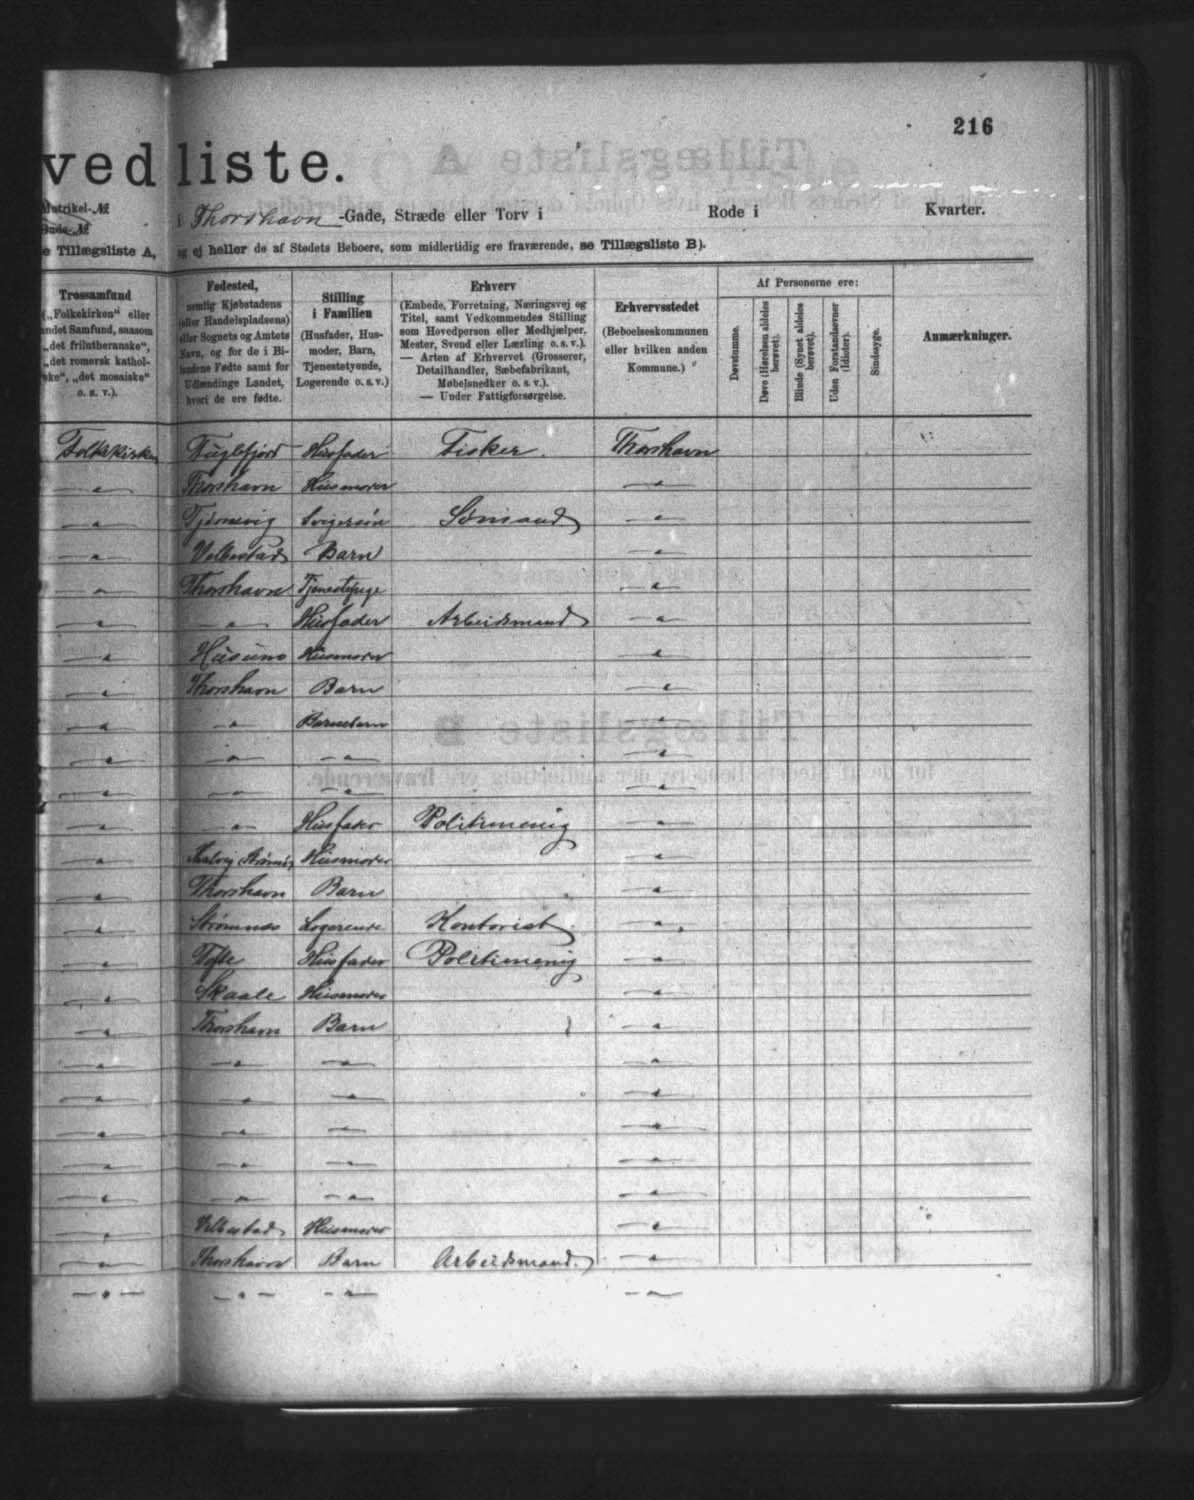 216
vedliste.
Matrikel-№
i Thorshavn -Gade, Stræde eller Torv i Rode i Kvarter.
e Tillægsliste A, og ej heller de af Stedets Beboere, som midlertidig ere fraværende, se Tillægsliste B).
Trossamfund
(„Folkekirken“ eller
andet Samfund, saasom
„det frilutheranske“,
„det romersk kathol-
ske“, „det mosaiske“
o. s. v.).
Fødested,
nemlig Kjøbstadens
(eller Handelspladsens)
eller Sognets og Amtets
Navn, og for de i Bi-
landene Fødte samt for
Udlændinge Landet,
hvori de ere fødte.
Stilling
i Familien
(Husfader, Hus-
moder, Barn,
Tjenestetyende,
Logerende o. s. v.)
Erhverv
(Embede, Forretning, Næringsvej og
Titel, samt Vedkommendes Stilling
som Hovedperson eller Medhjælper,
Mester, Svend eller Lærling o. s. v.).
— Arten af Erhvervet (Grosserer,
Detailhandler, Sæbefabrikant,
Møbelsnedker o. s. v.).
— Under Fattigforsørgelse.
Erhvervsstedet
(Beboelseskommunen
eller hvilken anden
Kommune.)
Af Personerne ere:
Døvstumme.
Døve (Hørelsen aldeles
berøvet).
Blinde (Synet aldeles
berøvet).
Uden Forstandsevner
(Idioter).
Sindssyge.
Anmærkninger.
Folkekirken Fuglefjord Husfader Fisker. Thorshavn
" Thorshavn Husmoder "
" Tjørnevig Svigersøn Sømand "
" Velbestad Barn "
" Thorshavn Tjenestepige "
" " Husfader Arbeidsmand "
" Husum Husmoder "
" Thorshavn Barn "
" " Barnebarn "
" " " "
" " " "
" " Husfader Politimenig "
" Husmoder "
" Thorshavn Barn "
" Strømnæs Logerende Kontorist "
" Tofte Husfader Politimenig "
" Skaale Husmoder "
" Thorshavn Barn "
" " " "
" " " "
" " " "
" " " "
" " " "
" Velbestad Husmoder "
" Thorshavn Barn Arbeidsmand. "
" " " "